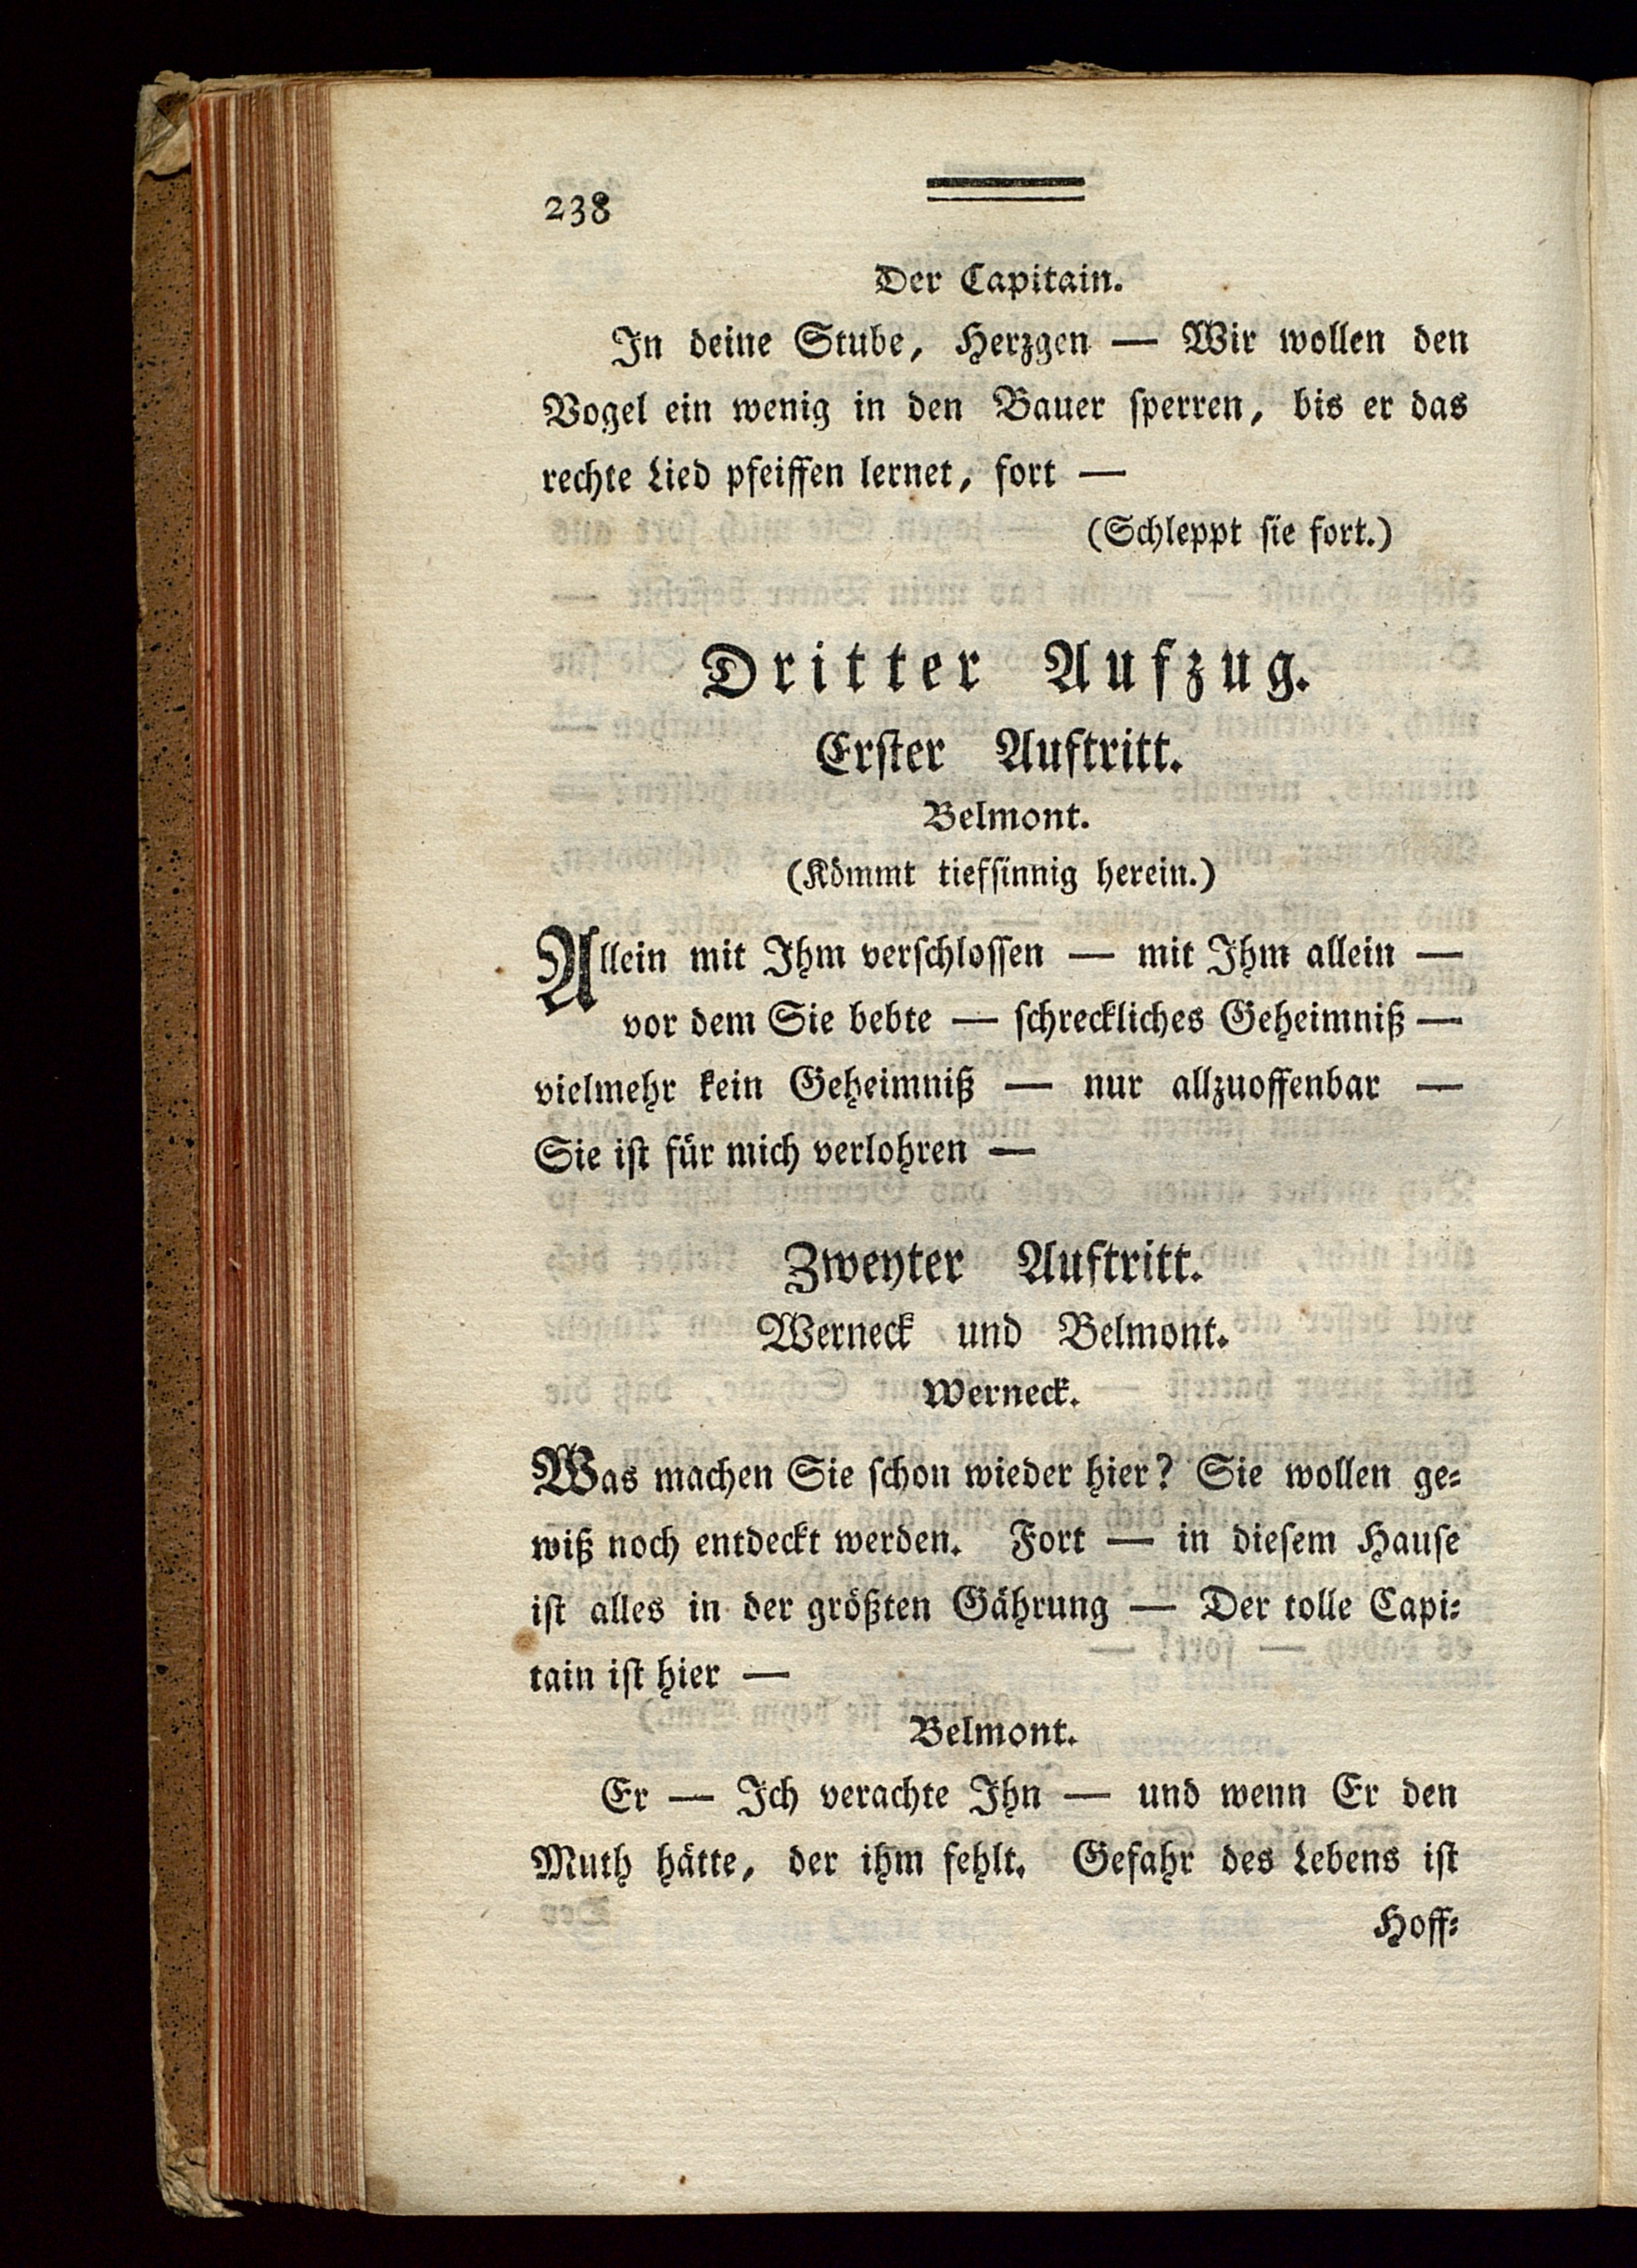 238
Der Capitain.
In deine Stube, Herzgen — Wir wollen den
Vogel ein wenig in den Bauer ſperren, bis er das
rechte Lied pfeiffen lernet, fort —
(Schleppt ſie fort.)
Dritter Aufzug.
Erſter Auftritt.
Belmont.
(Kömmt tiefſinnig herein.)
Allein mit Ihm verſchloſſen — mit Ihm allein —
vor dem Sie bebte — ſchreckliches Geheimniß —
vielmehr kein Geheimniß — nur allzuoffenbar —
Sie iſt für mich verlohren —
Zweyter Auftritt.
Werneck und Belmont.
Werneck.
Was machen Sie ſchon wieder hier? Sie wollen ge⸗
wiß noch entdeckt werden. Fort — in dieſem Hauſe
iſt alles in der größten Gährung — Der tolle Capi⸗
tain iſt hier —
Belmont.
Er — Ich verachte Ihn — und wenn Er den
Muth hätte, der ihm fehlt. Gefahr des Lebens iſt
Hoff⸗